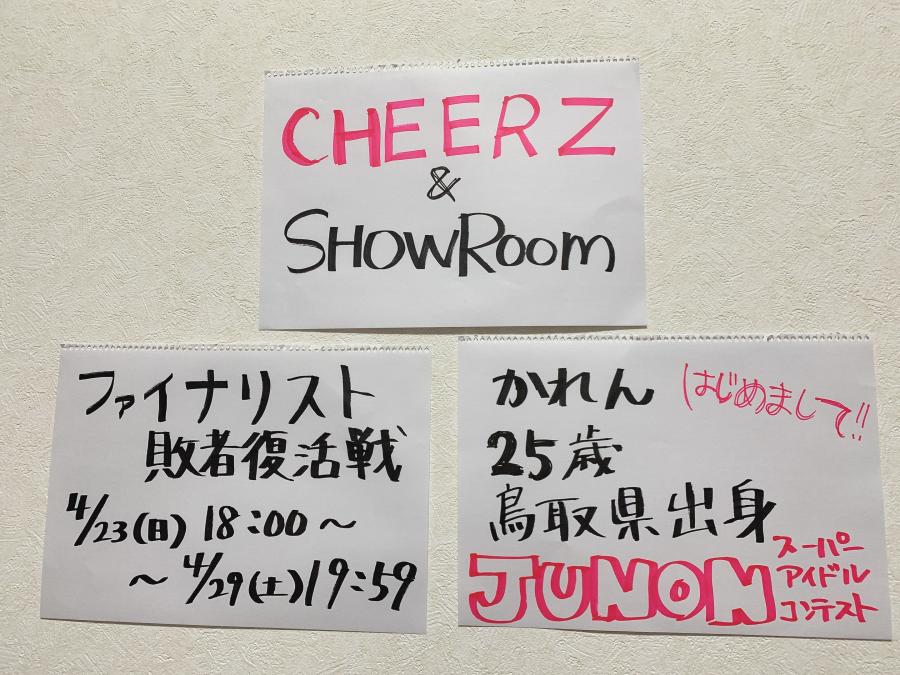 CHEERZ
&
SHOWROOM
ファイナリスト
敗者復活戦
4/23(日) 18:00〜
〜4/29(土)19:59
かれん
はじめまして!!
25歳
鳥取県出身
JUNON
スーパー
アイドル
コンテスト